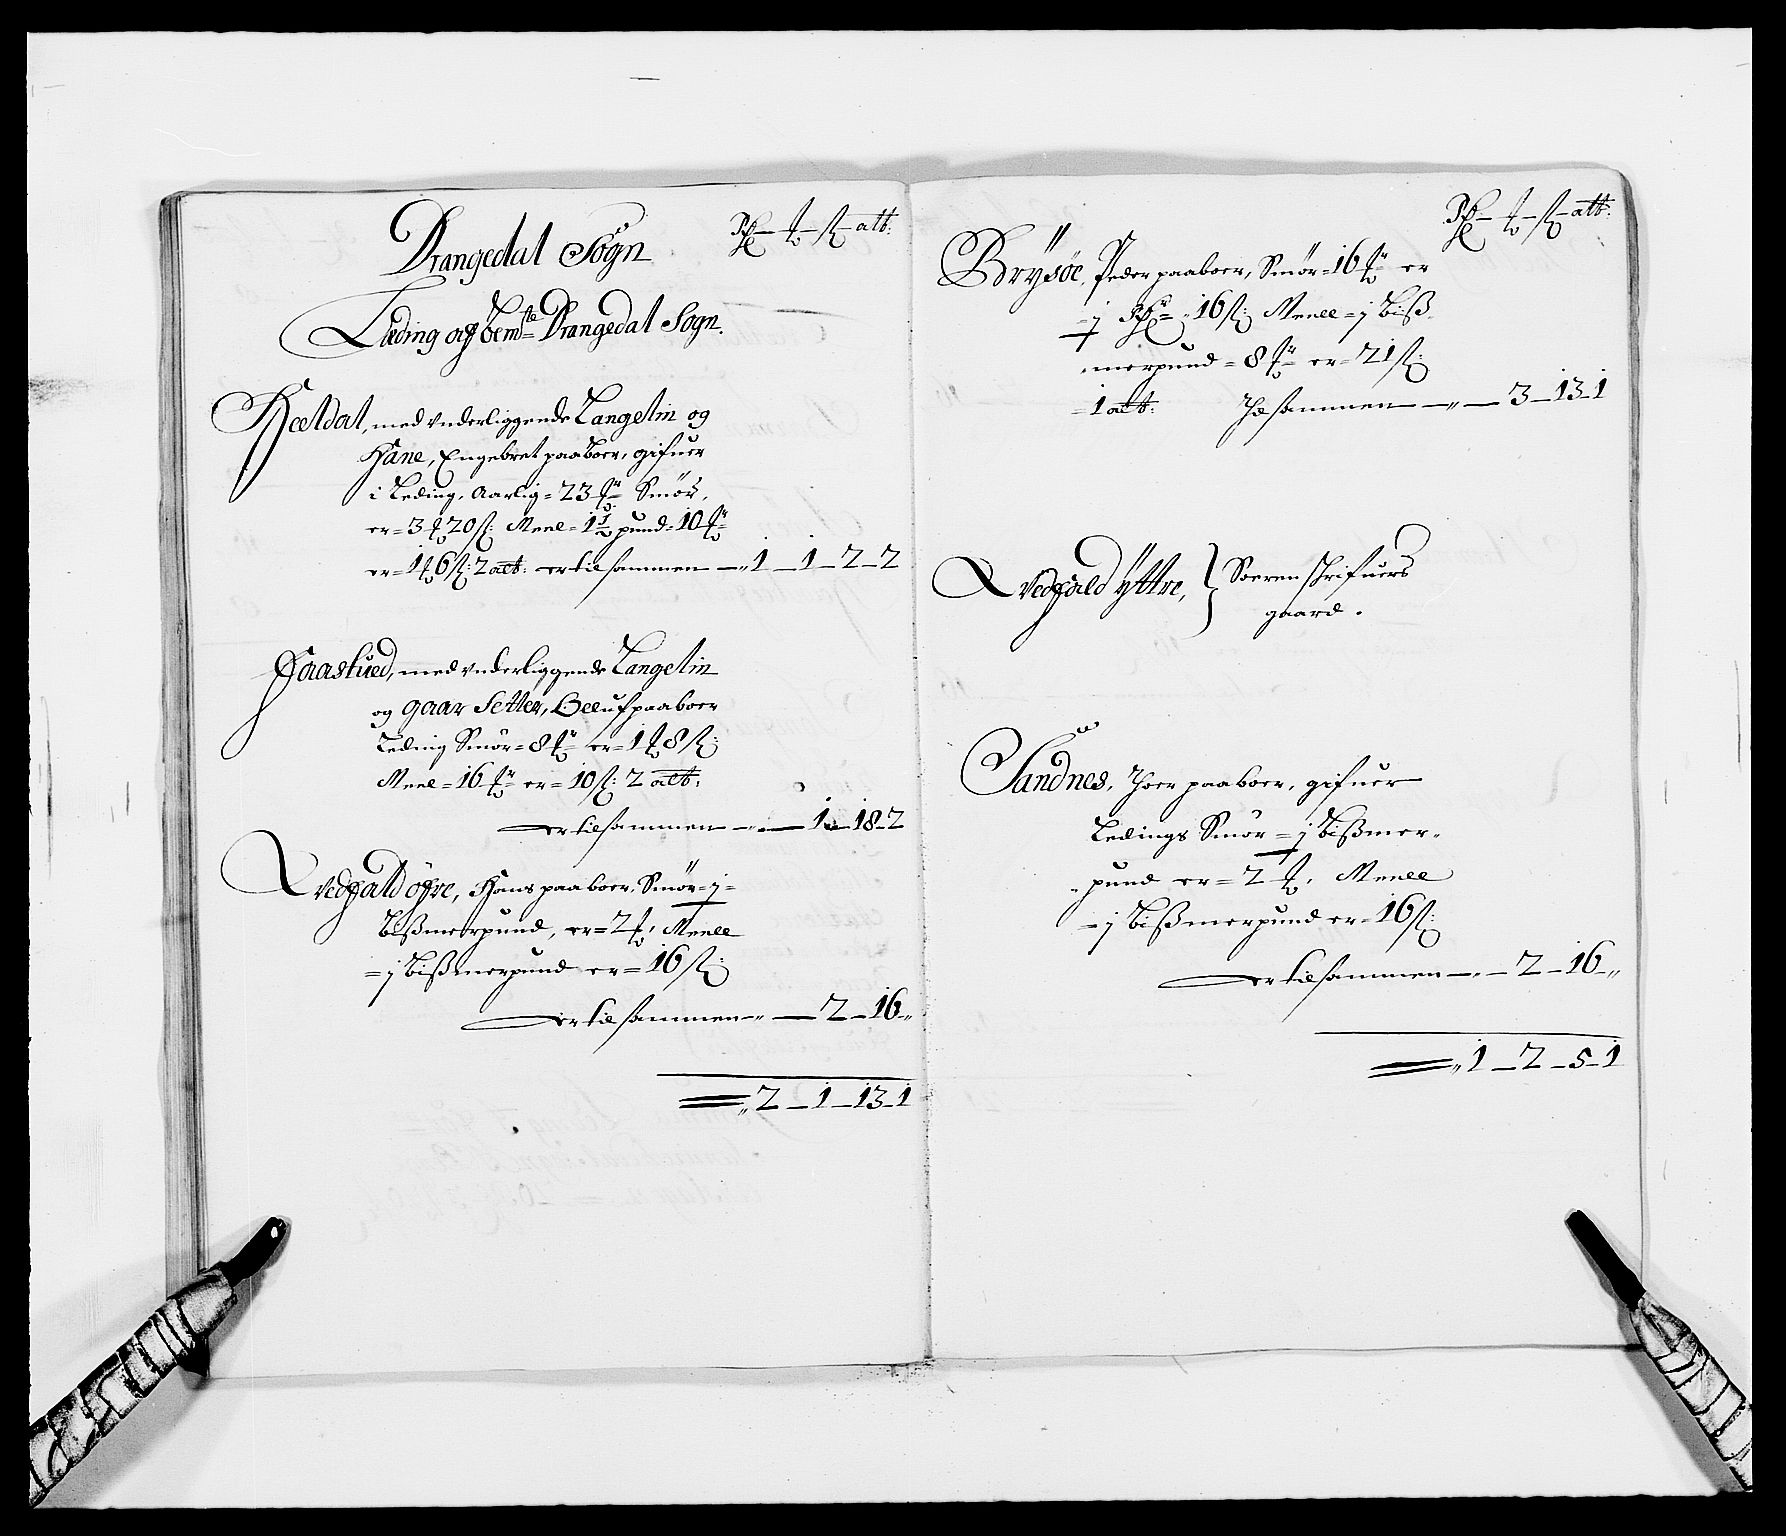 Drangedal Sogn
Rdl – ℔ – ß – alb:
Leding aff bem:te Drangedal Sogn.
Keldal, med underliggende Langelin og
Hane, Engebret paaboer, gifuer
i Leding, Aarlig = 23 ℔r Smör,
er = 3 ℔ 20 ß: Meel = 1½ pund = 10 ℔r
er = 1 ℔ 6 ß: 2 alb: er tilsammen — „ 1 – 1 – 2 – 2
Faastued, med underliggende Langelin
og gaar Setter, Oeluf paaboer
Leding Smör = 8 ℔r er = 1 ℔ 8 ß:
Meel = 16 ℔r er = 10 ß: 2 alb:
er tilsammen — „ — 1 – 18 – 2
Qvedfald öfre, Hans paaboer, Smör = j =
Bißmerpund, er = 2 ℔, Meell
= j Bißmerpund er = 16 ß:
er tilsammen — „ — 2 – 16 – „
„ 2 – 1 – 13 – 1
Rdl – ℔ – ß – alb:
Brysöe, Peder paaboer, Smör = 16 ℔r er
= j Rdr „ 16 ß: Meell = j Biß-
merpund = 8 ℔r er = 21 ß:
= 1 alb: Tilsammen — „ — 3 – 13 – 1
Qvedfald Yttre, } Soerenschrifuers
gaard.
Sandnes, Thor paaboer, gifuer
Ledings Smör = j Bißmer-
pund er = 2 ℔, Meell
= j Bißmerpund er = 16 ß:
er tilsammen — „ — 2 – 16 – „
„ 1 – 2 – 5 – 1